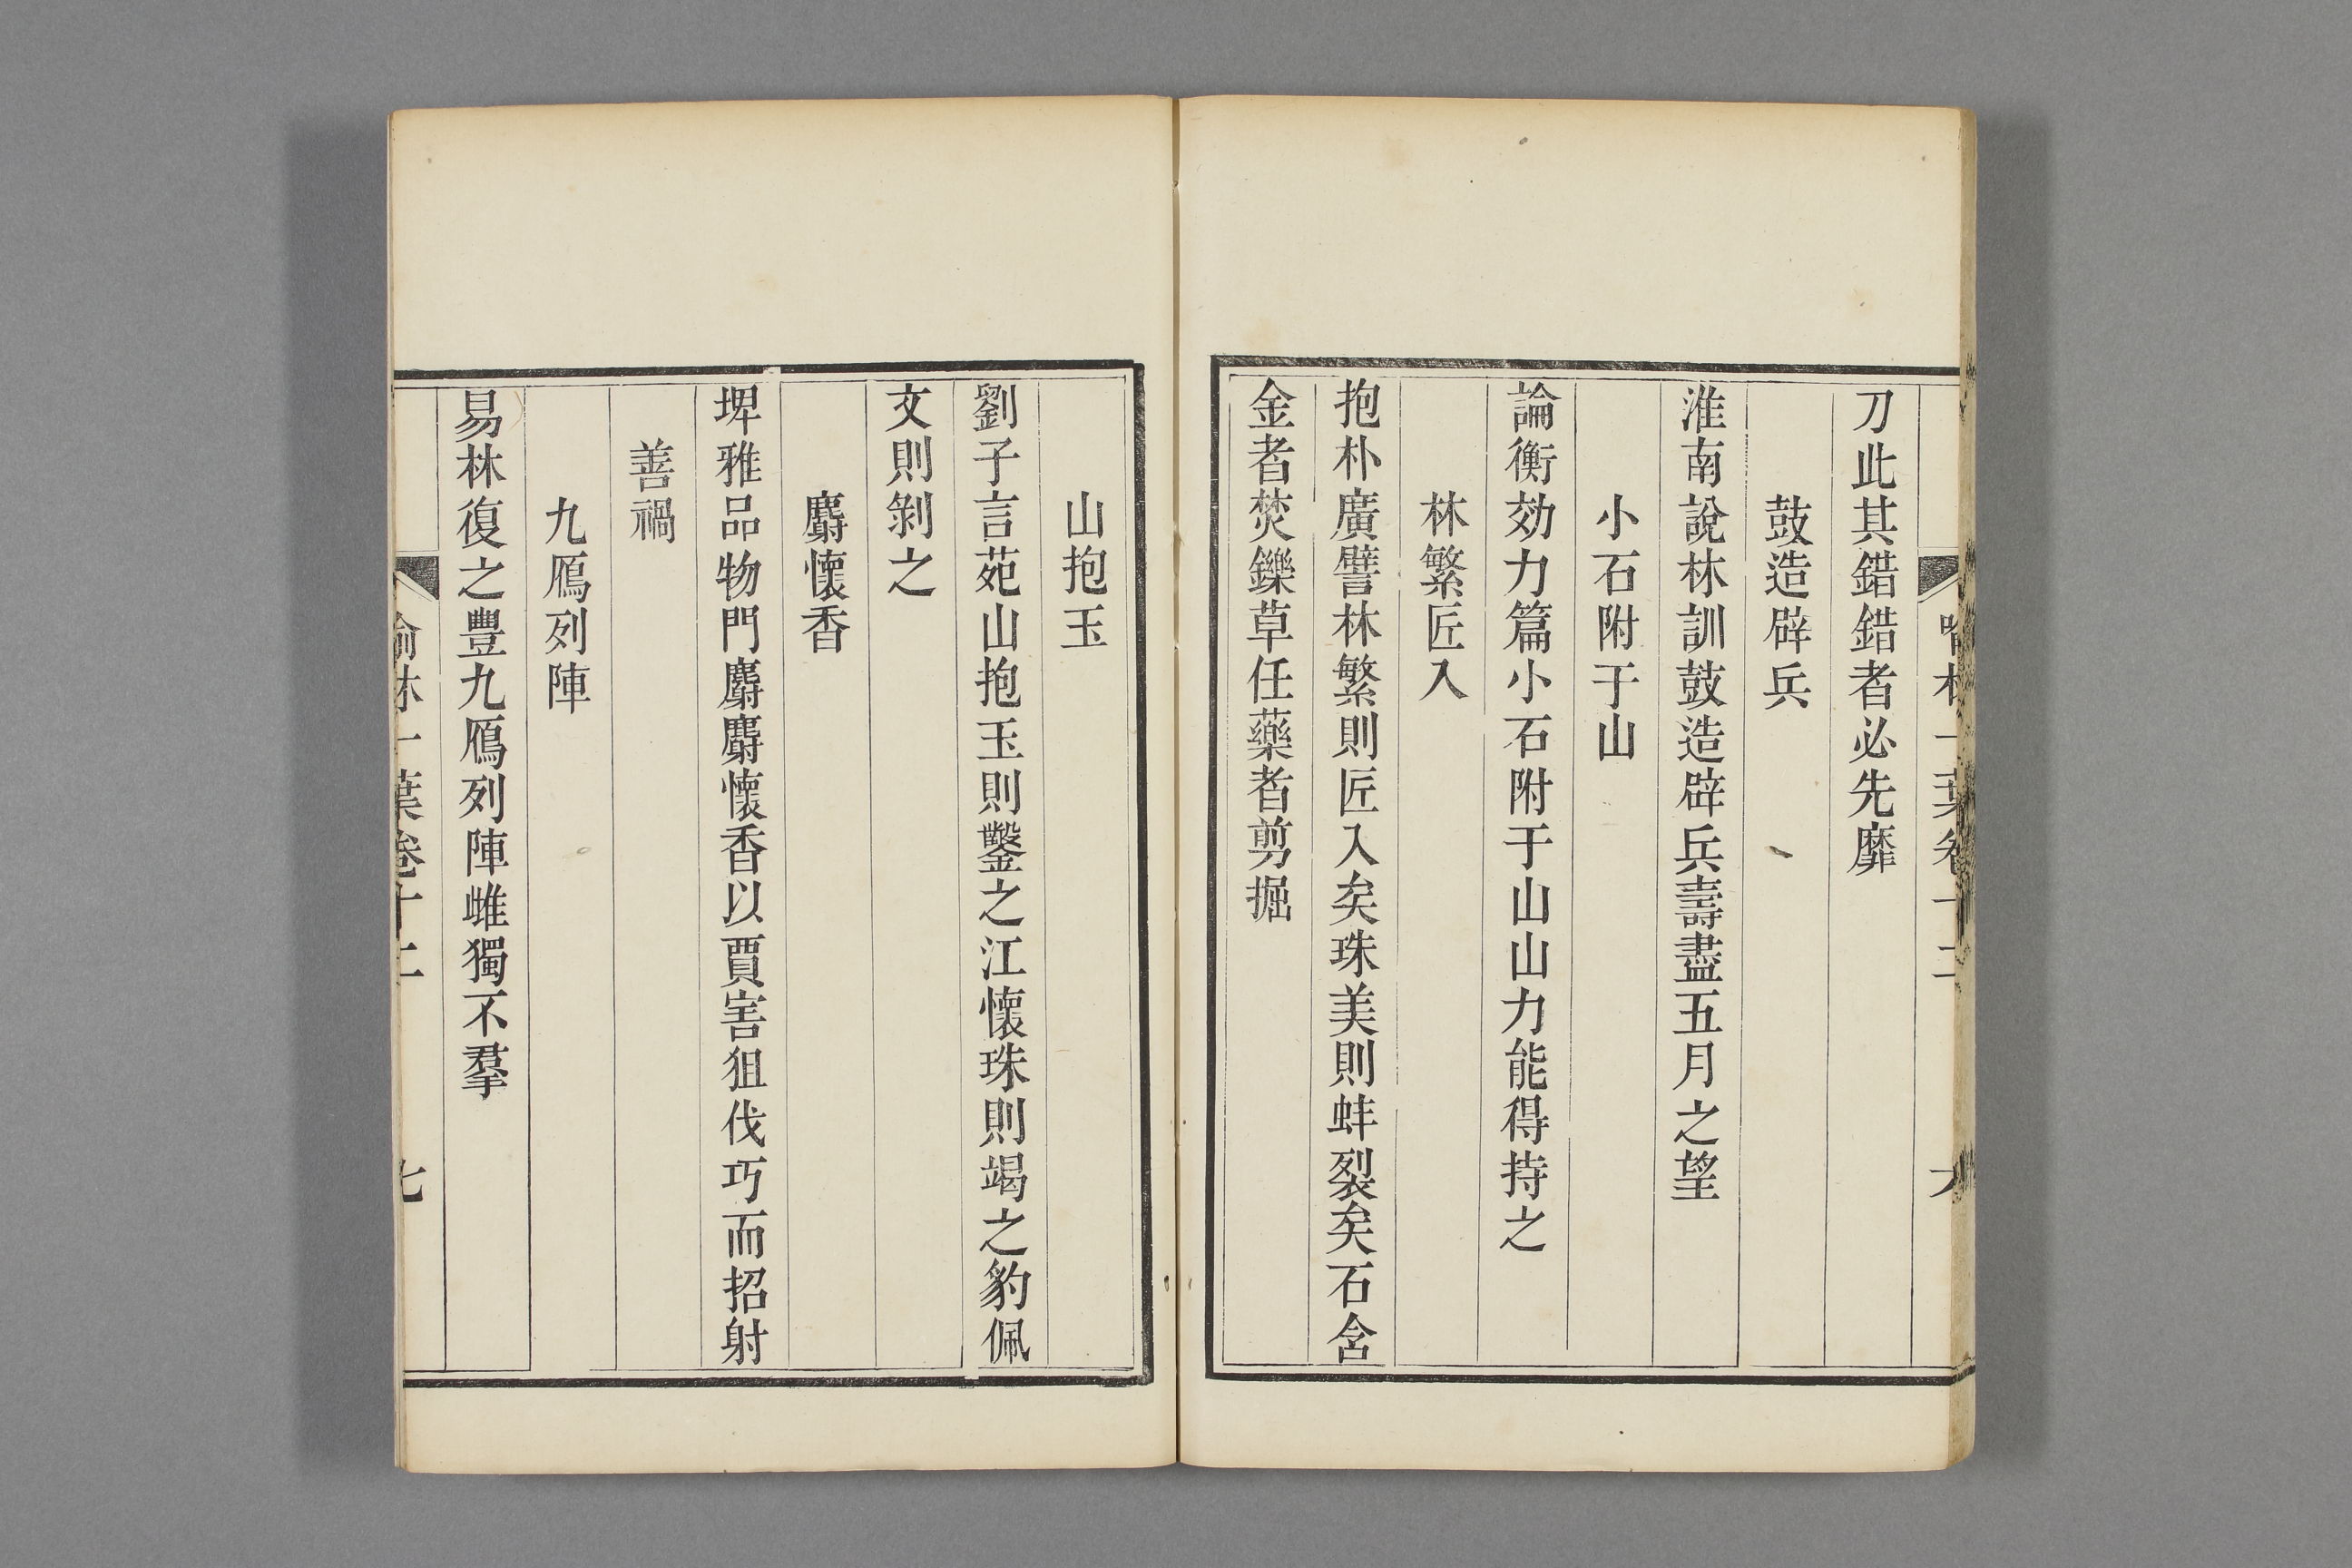 喻林一葉卷十二 六
刀此其錯錯者必先靡
鼓造辟兵
淮南說林訓鼓造辟兵壽盡五月之望
小石附于山
論衡効力篇小石附于山山力能得持之
林繁匠入
抱朴廣譬林繁則匠入矣珠美則蚌裂矣石含
金者焚鑠草任藥者剪掘
山抱玉
劉子言苑山抱玉則鑿之江懷珠則竭之豹佩
文則剝之
麝懷香
埤雅品物門麝麝懷香以賈害狙伐巧而招射
善禍
九鴈列陣
易林復之豐九鴈列陣雌獨不羣
喻林一葉卷十二 七